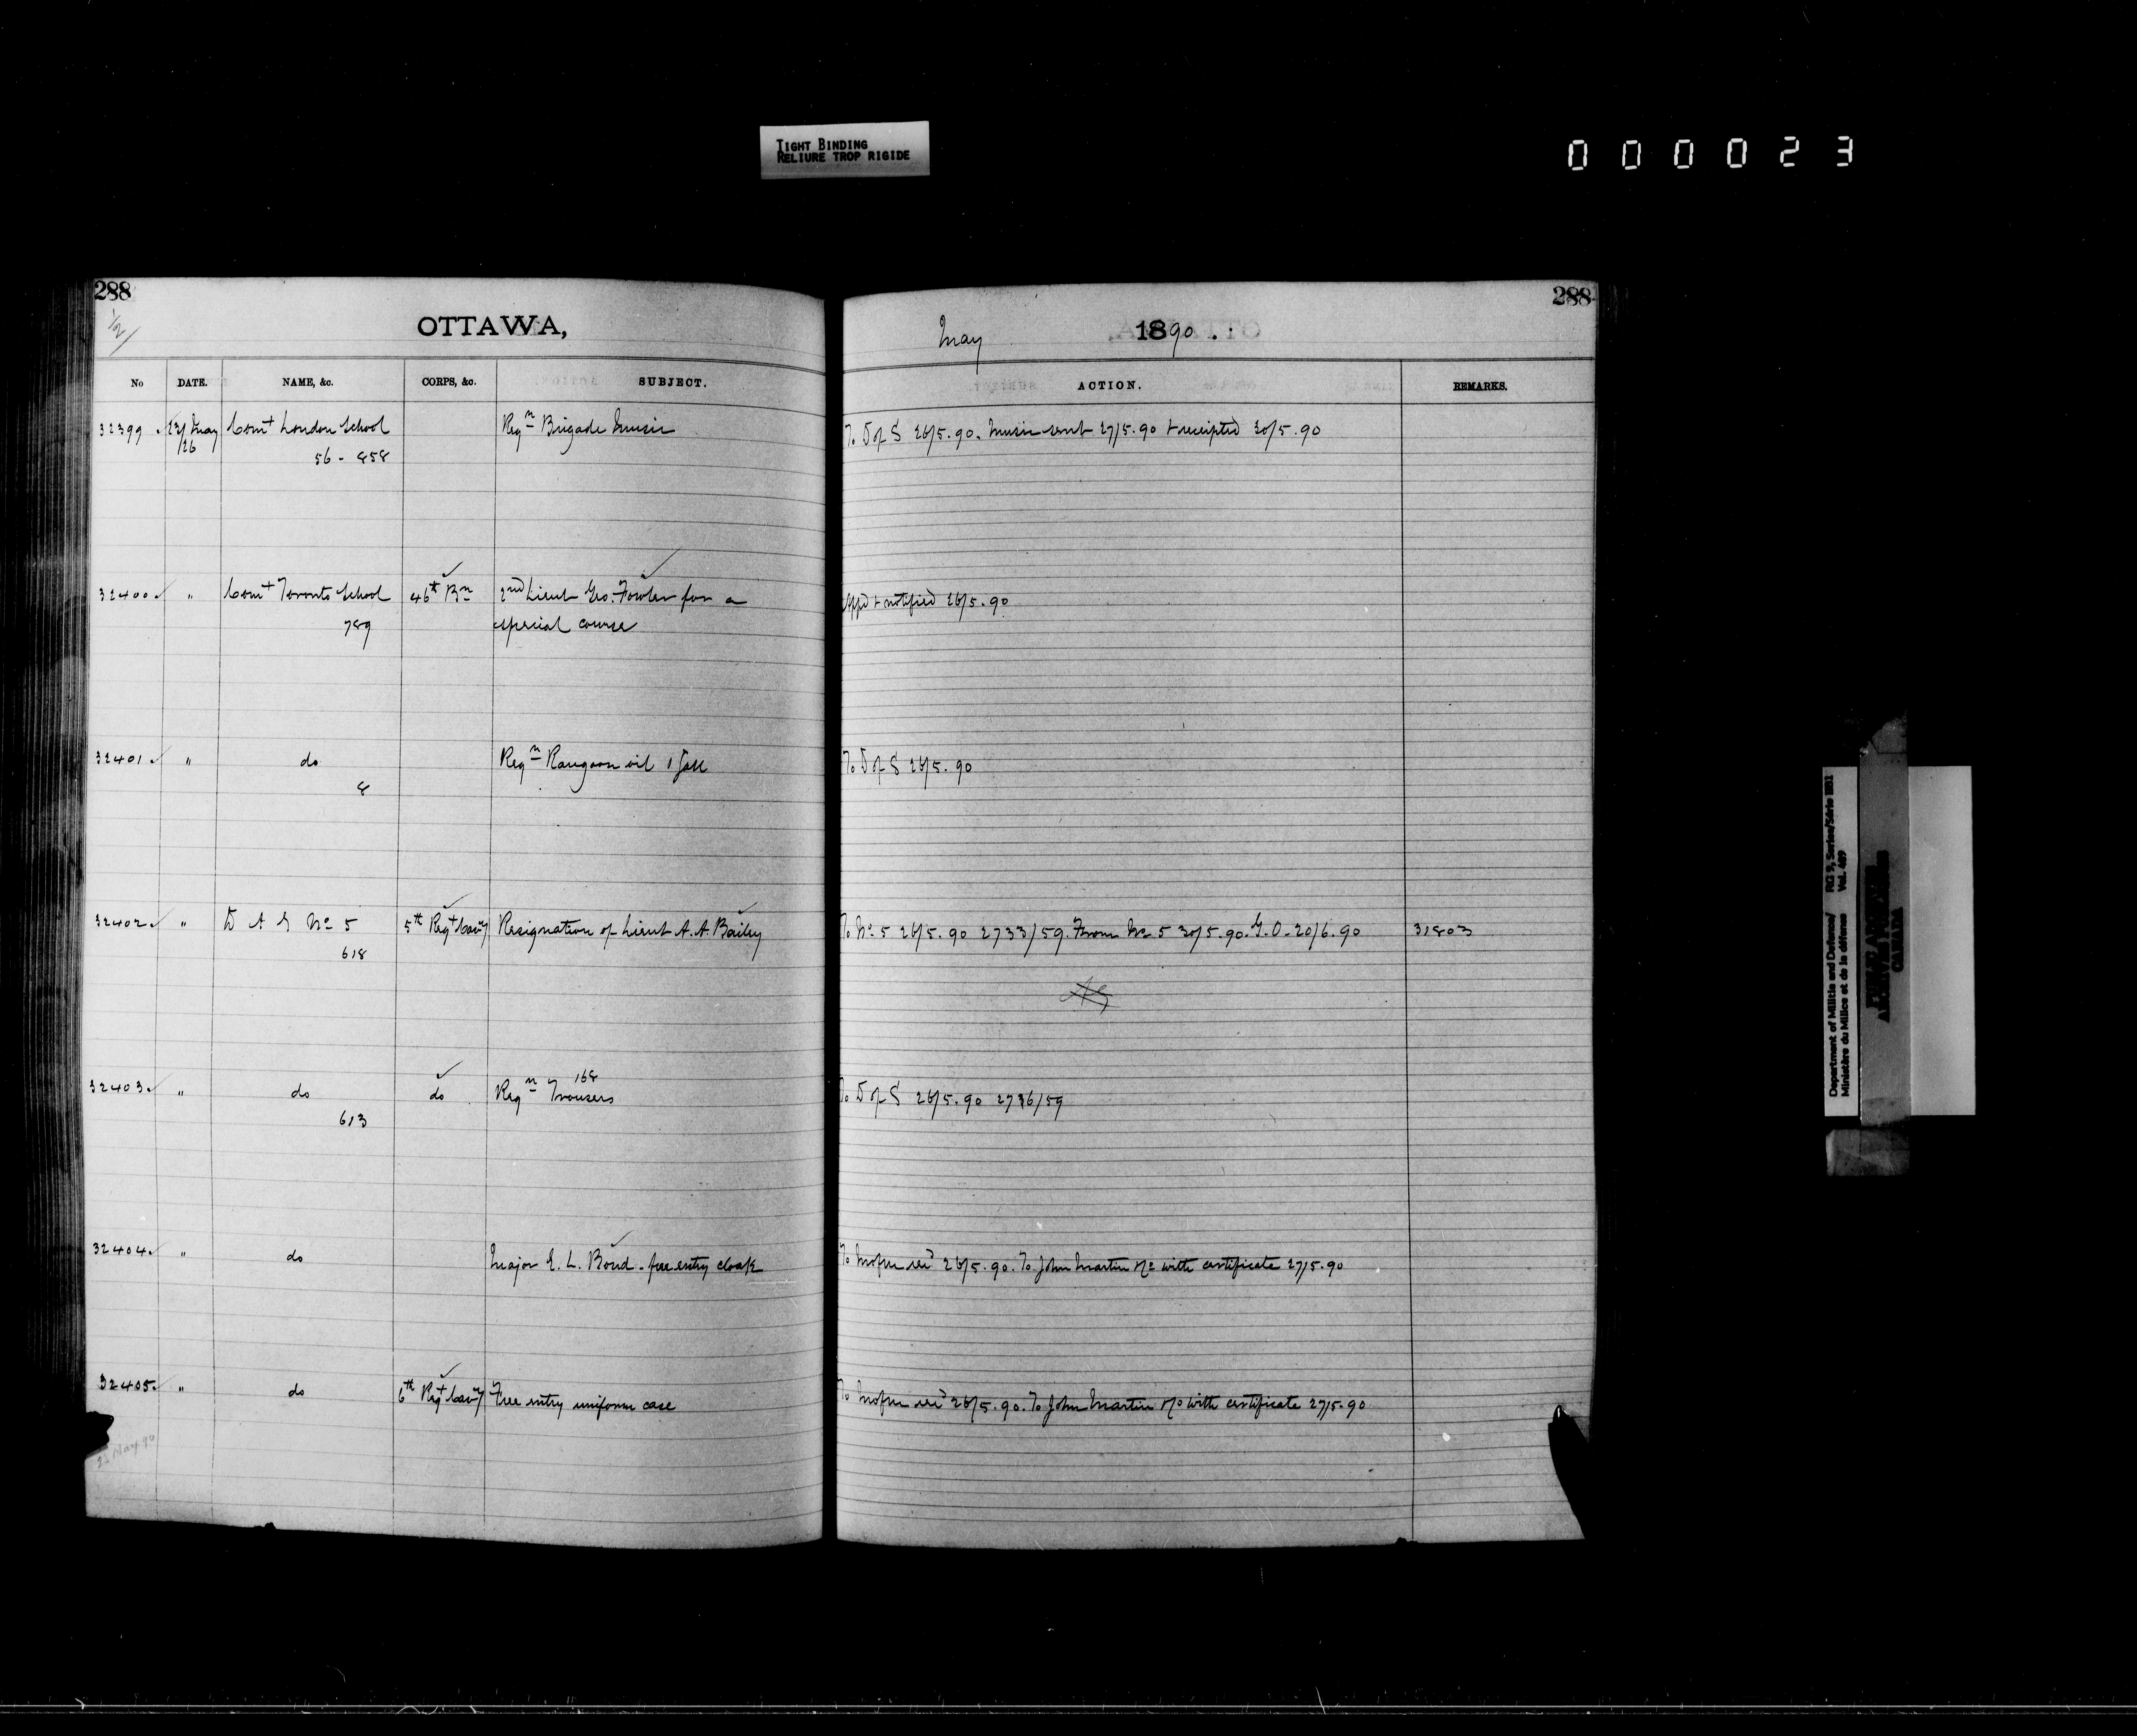 TIGHT BINDING
RELIURE TROP RIGIDE
000023
288
1/2
OTTAWA,
No DATE. NAME, &c. CORPS, &c. SUBJECT.
32399 23/May Comt London School Reqn Brigade Music
/26
56 - 858
32400 " Comt Toronto School 46th Bn 2nd Lieut Geo. Fowler for a
789 special course
32401 " do Reqn Rangoon oil 1 Gall
8
32402 " D A G No 5 5th Regt Cavy Resignation of Lieut A. A. Bailey
618
168
32403 " do do Reqn Trousers
613
32404 " do Major E. L. Bond - free entry cloak
32405 " do 6th Regt Cavy Free entry uniform case
23 May 90
288
May 1890.
ACTION. REMARKS.
To D of S 26/5.90. Music sent 27/5.90 + receipted 30/5.90
Appd + notified 26/5.90
To D of S 26/5.90
To No 5 26/5.90 2733/59. From No 5 30/5.90. G.O. 20/6.90 31803
To D of S 26/5.90 2736/59
To 26/5.90. To John Martin with certificate 27/5.90
To 26/5.90. To John Martin with certificate 27/5.90
Department of Militia and Defence/ RG 9, Series/Série IIB1
Ministère du Milice et de la défense Vol. 489
PUBLIC ARCHIVES
ARCHIVES PUBLIQUES
CANADA